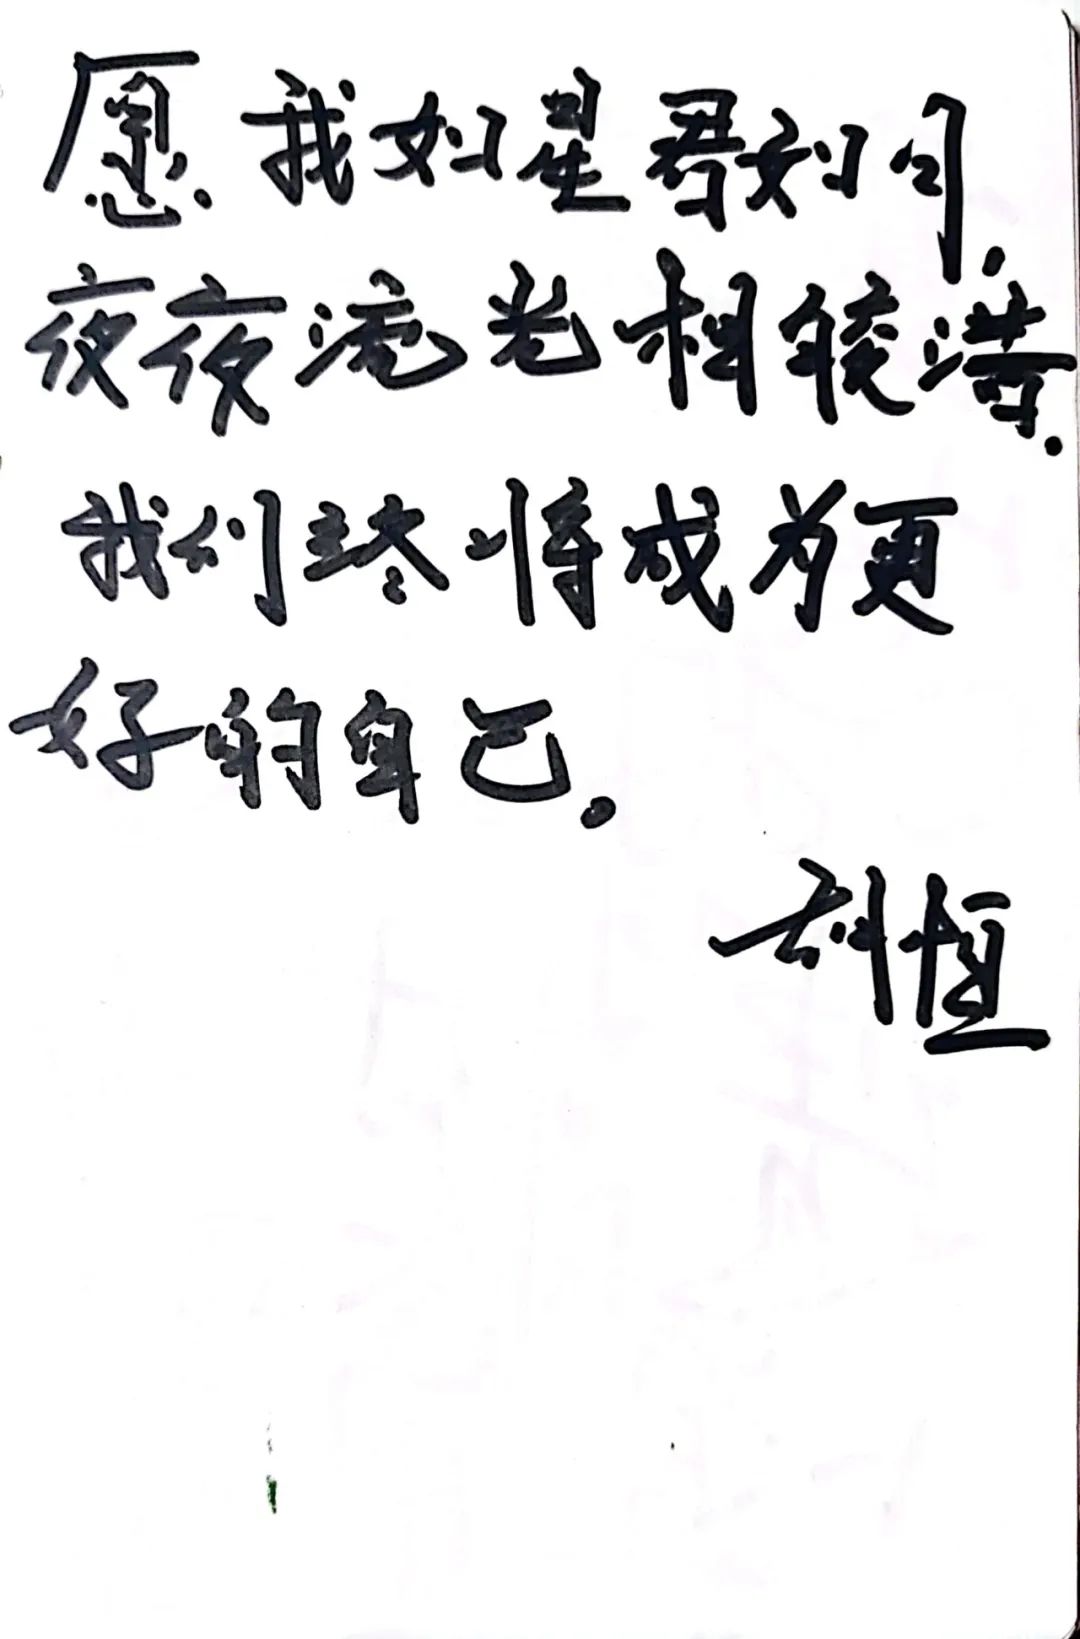 愿我如星君如月,
夜夜流光相皎洁.
我们终将成为更
好的自己.
恒